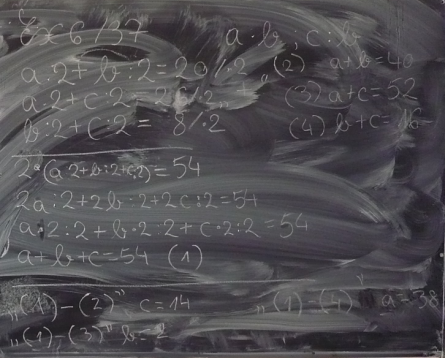 Ex 6/37 a, b, c: lb
a:2+b:2=20/·2 "(2) a+b=40
a:2+c:2=26/·2 (3) a+c=52
b:2+c:2= 8/·2 (4) b+c=16
2·(a:2+b:2+c:2)=54
2a:2+2b:2+2c:2=54
a·2:2+b·2:2+c·2:2=54
a+b+c=54 (1)
"(1)-(2)" c=14 "(1)-(4) a=38
"(1)-(3)" b=2